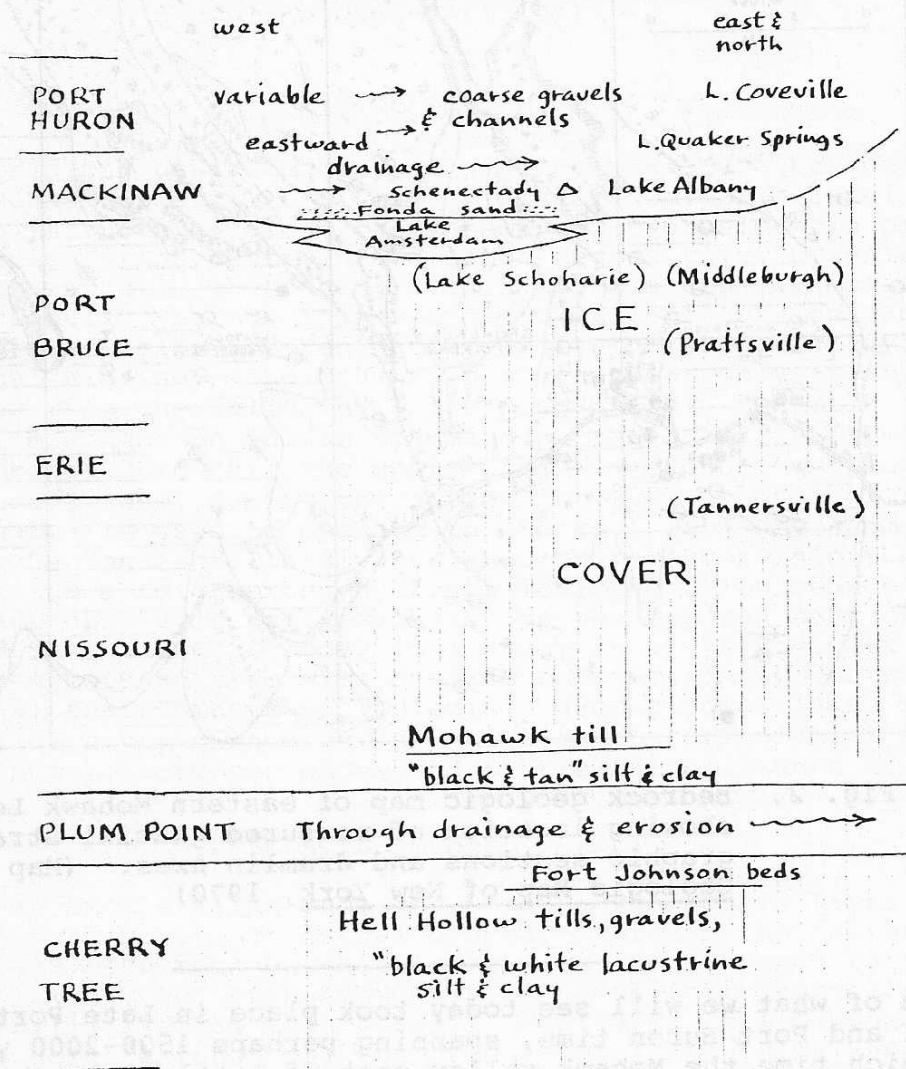 west
east &
north
PORT
HURON
variable → coarse gravels
& channels
L. Coveville
eastward →
L. Quaker Springs
drainage →
MACKINAW
→ Schenectady Δ Lake Albany
Fonda sand
Lake
Amsterdam
(Lake Schoharie) (Middleburgh)
PORT
BRUCE
ICE
(Prattsville)
ERIE
(Tannersville)
COVER
NISSOURI
Mohawk till
"black & tan" silt & clay
PLUM POINT Through drainage & erosion →
Fort Johnson beds
Hell Hollow tills, gravels,
CHERRY
TREE
"black & white lacustrine
silt & clay